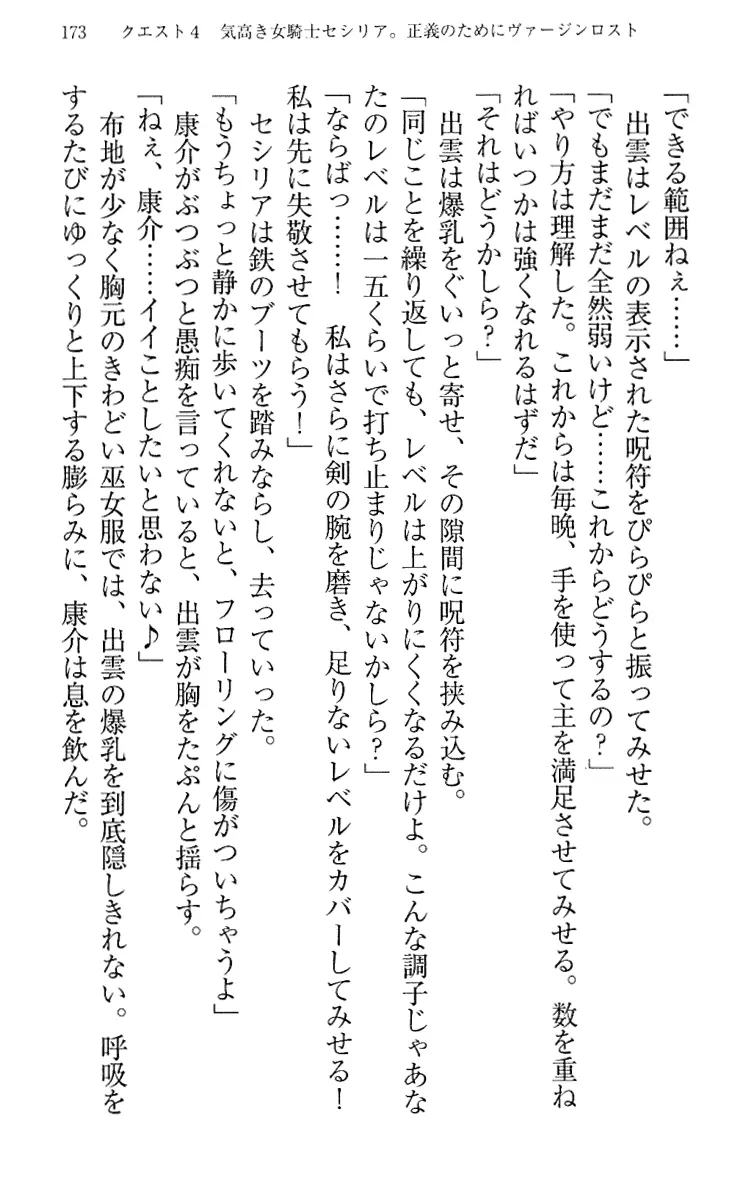 173　クエスト４　気高き女騎士セシリア。正義のためにヴァージンロスト
「できる範囲ねぇ……」
　出雲はレベルの表示された呪符をぴらぴらと振ってみせた。
「でもまだまだ全然弱いけど……これからどうするの？」
「やり方は理解した。これからは毎晩、手を使って主を満足させてみせる。数を重ね
ればいつかは強くなれるはずだ」
「それはどうかしら？」
　出雲は爆乳をぐいっと寄せ、その隙間に呪符を挟み込む。
「同じことを繰り返しても、レベルは上がりにくくなるだけよ。こんな調子じゃあな
たのレベルは一五くらいで打ち止まりじゃないかしら？」
「ならばっ……！　私はさらに剣の腕を磨き、足りないレベルをカバーしてみせる！
私は先に失敬させてもらう！」
　セシリアは鉄のブーツを踏みならし、去っていった。
「もうちょっと静かに歩いてくれないと、フローリングに傷がついちゃうよ」
　康介がぶつぶつと愚痴を言っていると、出雲が胸をたぷんと揺らす。
「ねぇ、康介……イイことしたいと思わない♪」
　布地が少なく胸元のきわどい巫女服では、出雲の爆乳を到底隠しきれない。呼吸を
するたびにゆっくりと上下する膨らみに、康介は息を飲んだ。